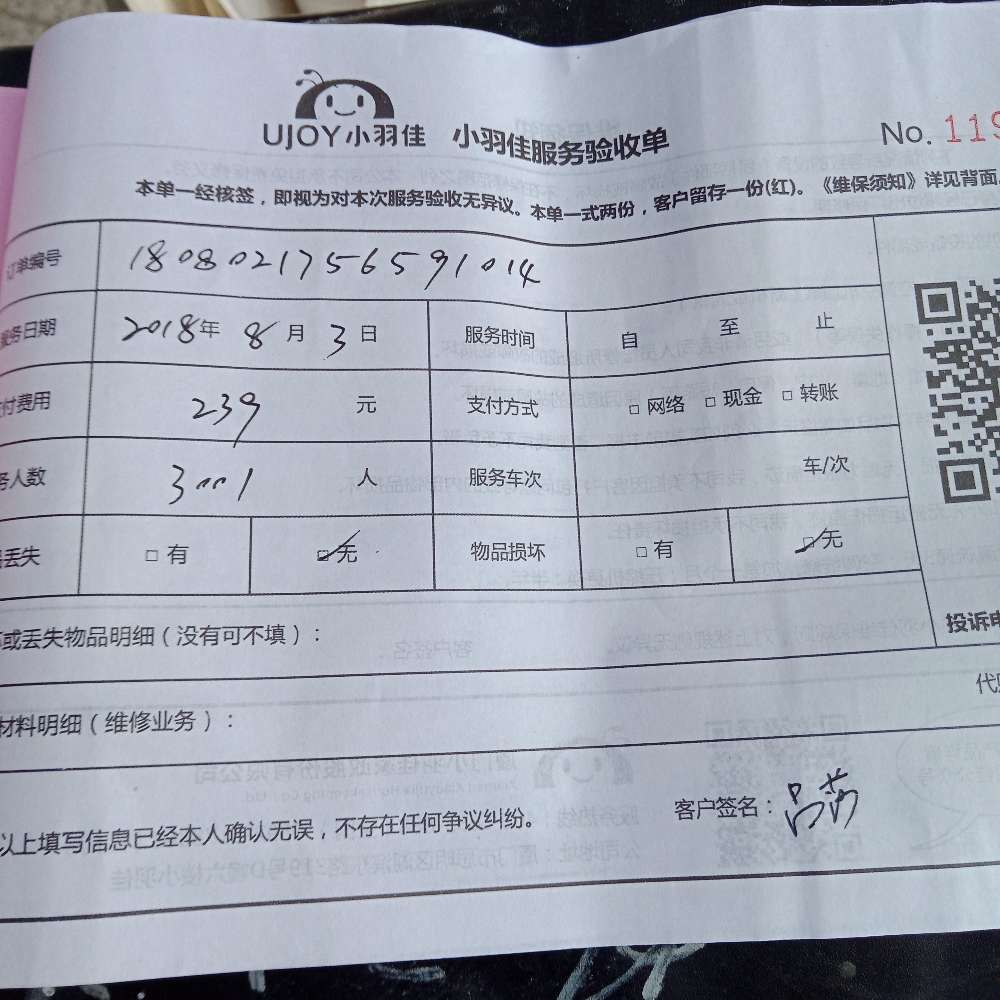 UJOY小羽佳 小羽佳服务验收单 No. 119
本单一经核签，即视为对本次服务验收无异议。本单一式两份，客户留存一份(红)。《维保须知》详见背面。
订单编号 1808021756591014
服务日期 2018年 8月 3日 服务时间 自 至 止
付费用 239 元 支付方式 □ 网络 □ 现金 □ 转账
务人数 人 服务车次 车/次
丢失 □ 有 □ 无 物品损坏 □ 有 □ 无
或丢失物品明细（没有可不填）：
投诉电
材料明细（维修业务）：
代
以上填写信息已经本人确认无误，不存在任何争议纠纷。 客户签名：